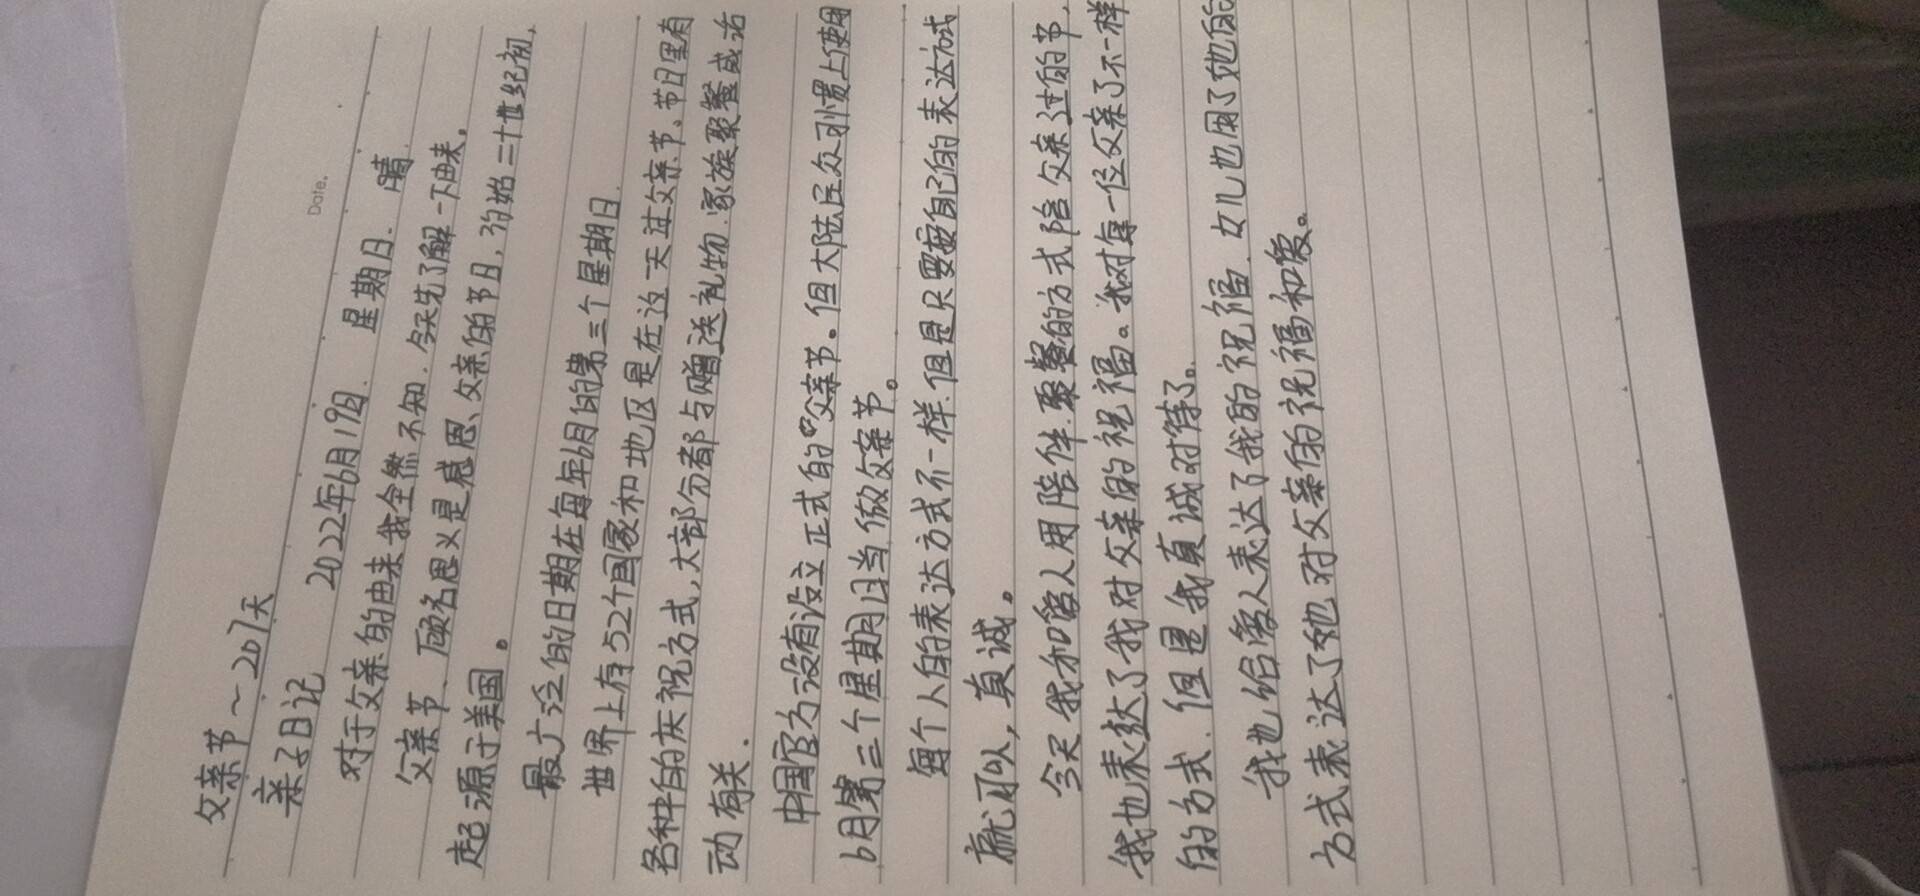 Date.
父亲节～207天
亲子日记 2022年6月19日. 星期日. 晴.
对于父亲的由来我全然不知. 今天先了解一下由来.
父亲节、顾名思义是感恩、父亲的节日, 约始二十世纪初,
起源于美国。
最广泛的日期在每年6月的第三个星期日.
世界上有52个国家和地区是在这一天过父亲节、节日里有
各种的庆祝方式, 大部分都与赠送礼物. 家族聚餐或活
动有关.
中国官方没有设立正式的“父亲节。但大陆民众习惯上使用
6月第三个星期日当做父亲节。
每个人的表达方式不一样. 但是只要按自己的表达方式
就可以, 真诚。
今天我和爱人用陪伴. 聚餐的方式陪父亲过的节,
我也表达了我对父亲的祝福。我对每一位父亲了不一样
的方式. 但是我真诚对待了。
我也给爱人表达了我的祝福. 女儿也用了她的
方式表达了她对父亲的祝福和爱。